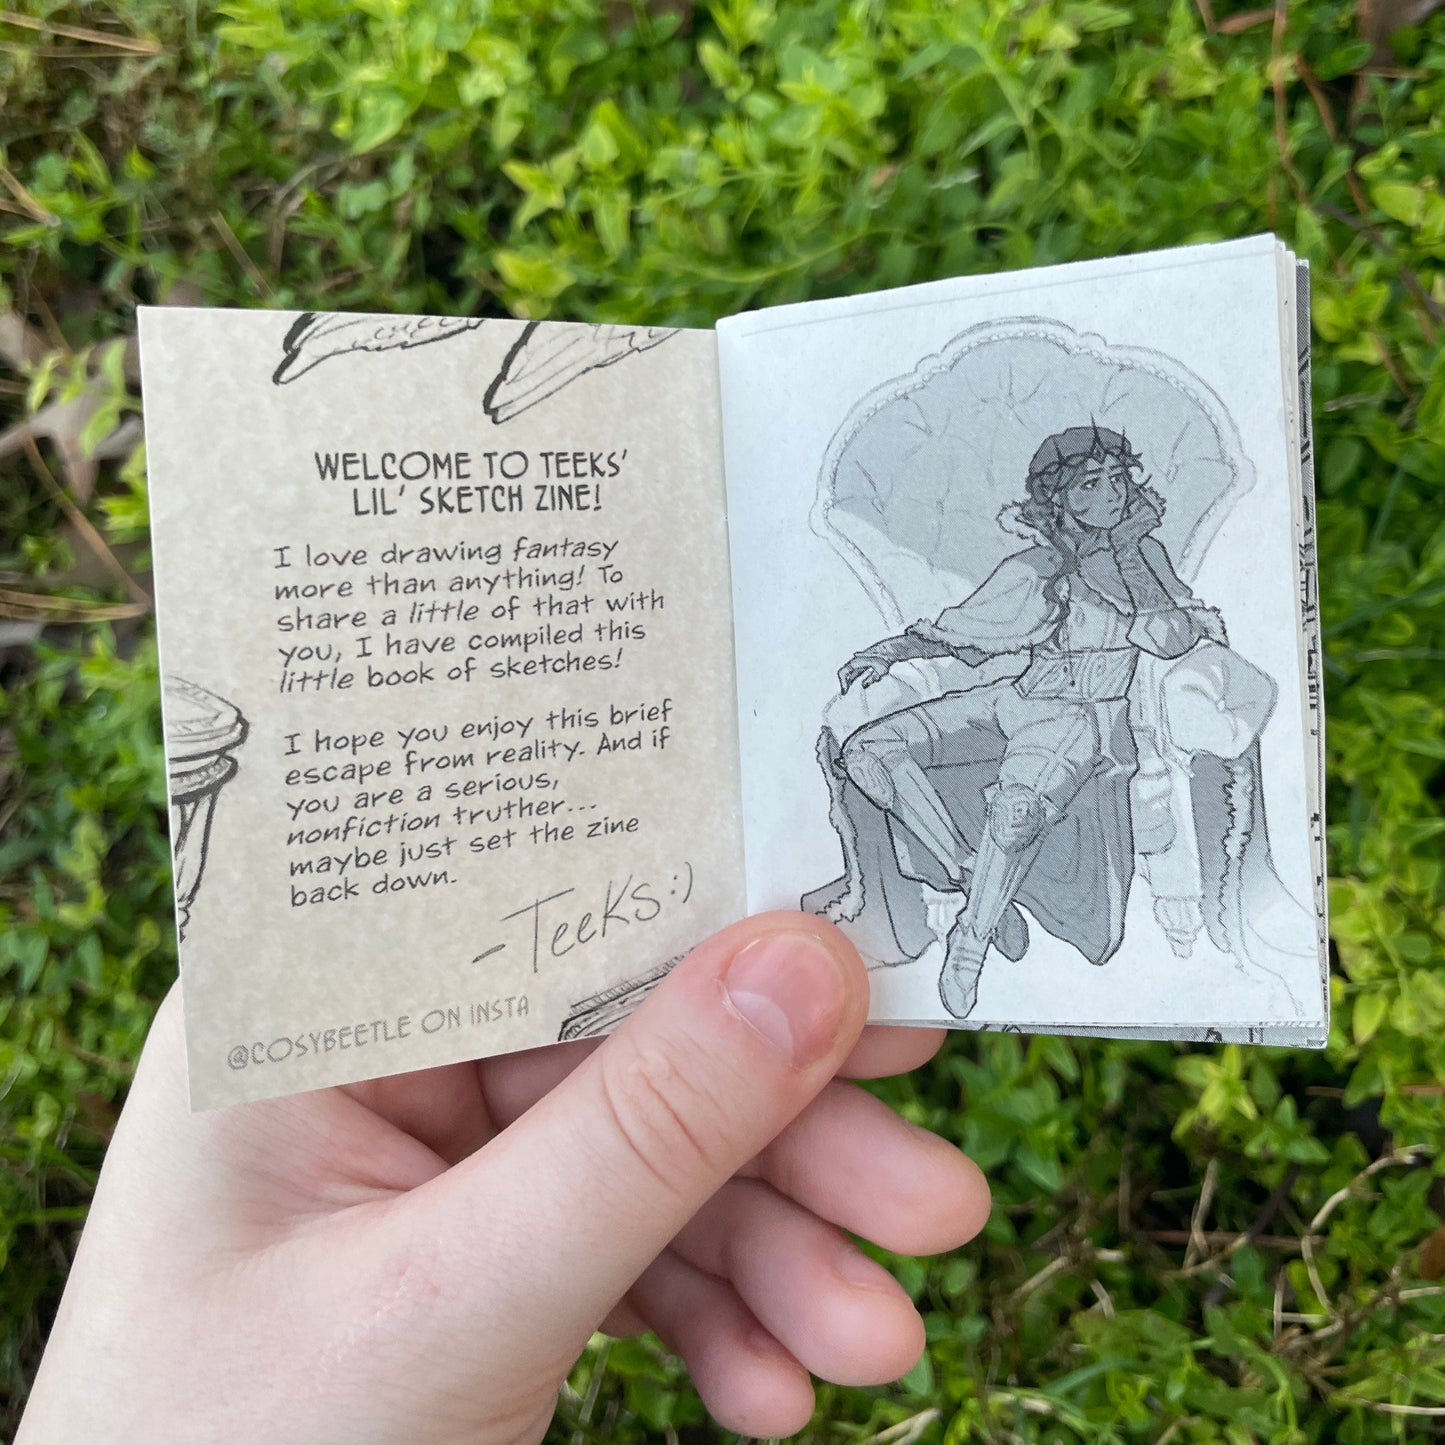 WELCOME TO TEEKS'
LIL' SKETCH ZINE!
I love drawing fantasy
more than anything! To
share a little of that with
you, I have compiled this
little book of sketches!
I hope you enjoy this brief
escape from reality. And if
you are a serious,
nonfiction truther...
maybe just set the zine
back down.
-Teeks:)
@COSYBEETLE ON INSTA